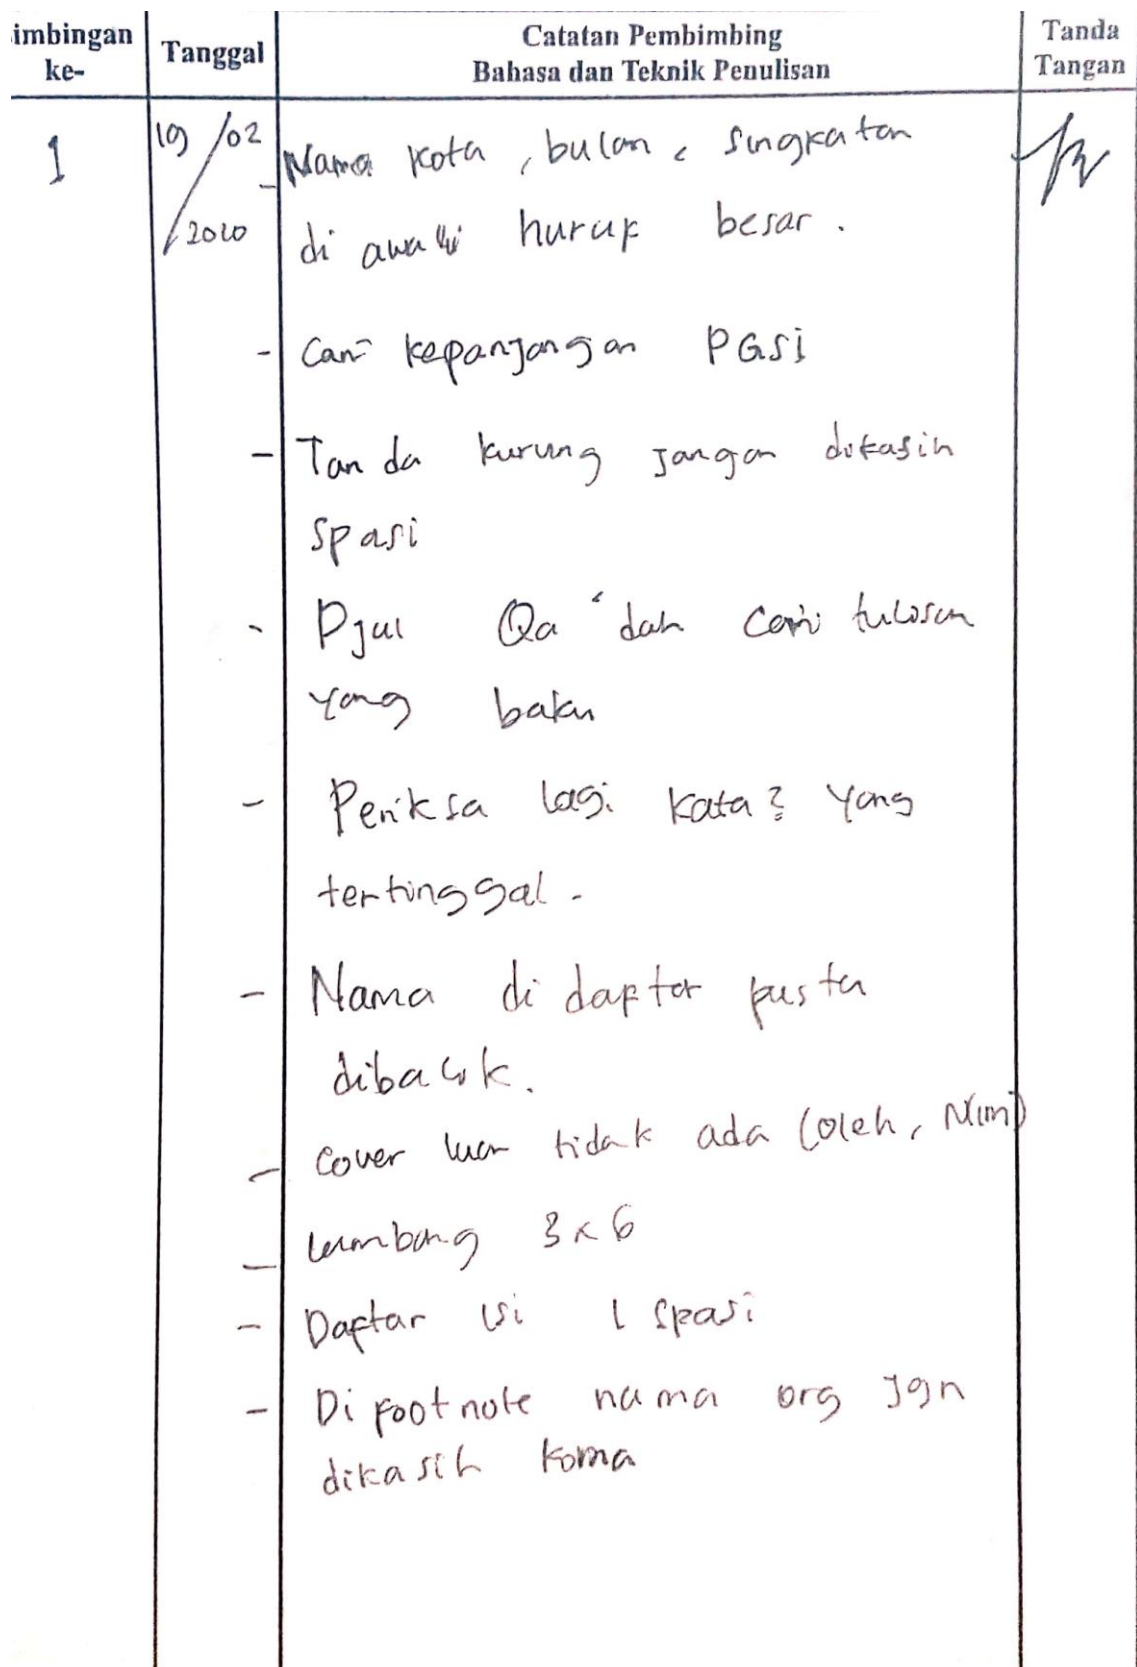 imbingan ke-
Tanggal
Catatan Pembimbing
Bahasa dan Teknik Penulisan
Tanda Tangan
1
19/02/2020
- Nama kota, bulan, singkatan
di awali huruf besar.
- Cari kepanjangan PGSI
- Tanda kurung jangan dikasih
spasi
- Djul Qa'dah cari tulisan
yang baku
- Periksa lagi kata2 yang
tertinggal.
- Nama di daftar pusta
dibalik.
- Cover luar tidak ada (oleh, Nim)
- Lambang 3x6
- Daftar isi 1 spasi
- Di footnote nama org jgn
dikasih koma